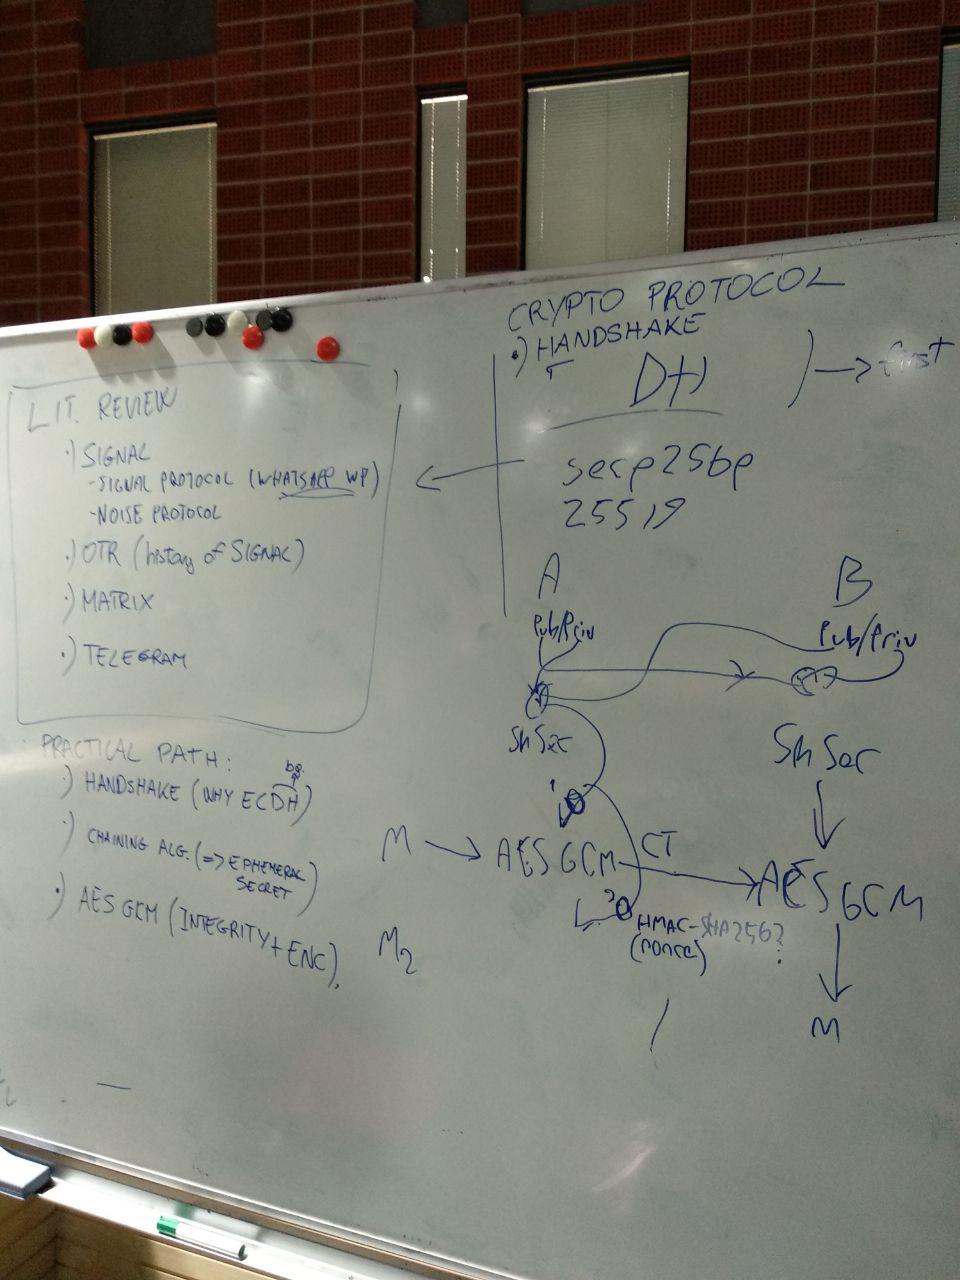 LIT. REVIEW
·) SIGNAL
- SIGNAL PROTOCOL (WHATSAPP WP)
- NOISE PROTOCOL
·) OTR (history of SIGNAL)
·) MATRIX
·) TELEGRAM
PRACTICAL PATH:
·) HANDSHAKE (WHY ECDH)
·) CHAINING ALG. (=> EPHEMERAL
SECRET)
·) AES GCM (INTEGRITY +
ENC).
CRYPTO PROTOCOL
·) HANDSHAKE
DH
→ first
secp256p
25519
A B
Pub/Priv Pub/Priv
ShSec ShSec
1
M → AES GCM CT AES GCM
2
HMAC-SHA256?
(nonce)
M2
M